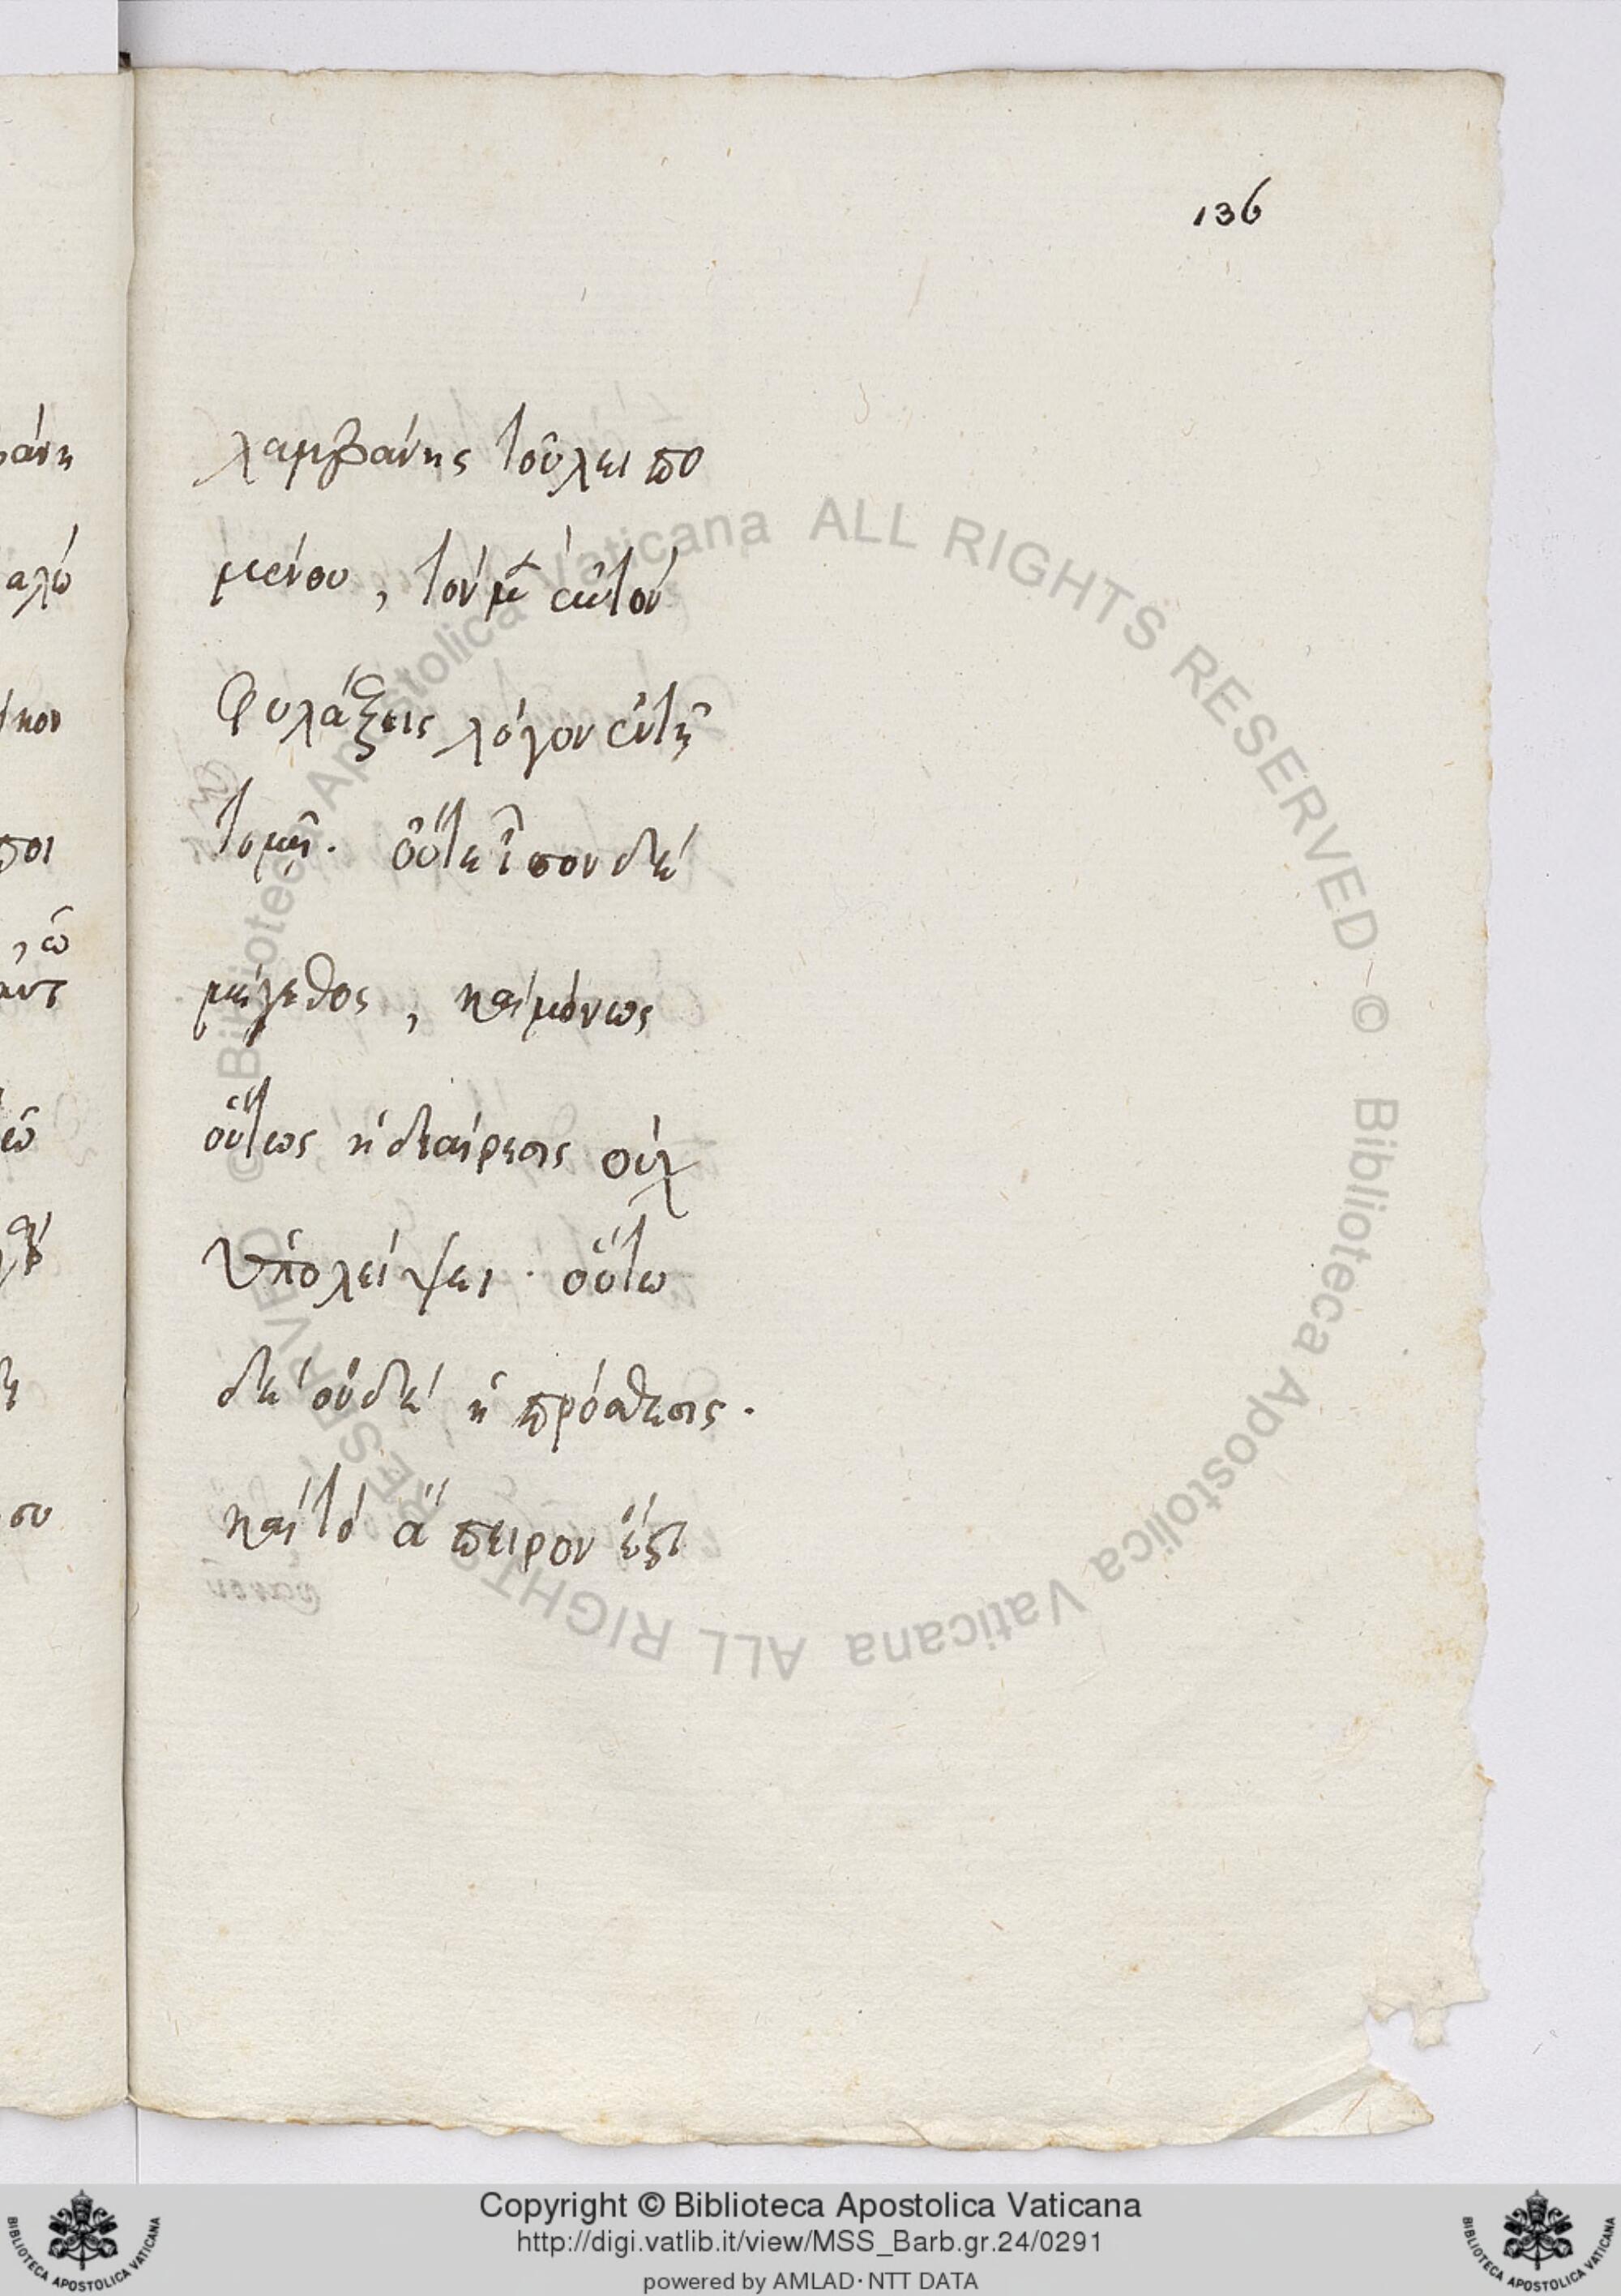 136
λαμβάνης τοῦ λειπο
μένου, τὸν μ̃ αὐτὸν
φυλάξεις λόγον ἐν τῇ
τομῇ. οὔτε ἴσον δὲ
μέγεθος, καὶ μόνως
οὕτως ἡ διαίρεσις οὐχ
ὑπολείψει. οὕτω
δὲ οὐδὲ ἡ πρόσθεσις.
καὶ τὸ ἄπειρον ἐστ
βάνη
αλω
ποι
ου
Copyright © Biblioteca Apostolica Vaticana
http://digi.vatlib.it/view/MSS_Barb.gr.24/0291
powered by AMLAD·NTT DATA
© Biblioteca Apostolica Vaticana ALL RIGHTS RESERVED © Biblioteca Apostolica Vaticana ALL RIGHTS RESERVED
BIBLIOTECA APOSTOLICA VATICANA
BIBLIOTECA APOSTOLICA VATICANA